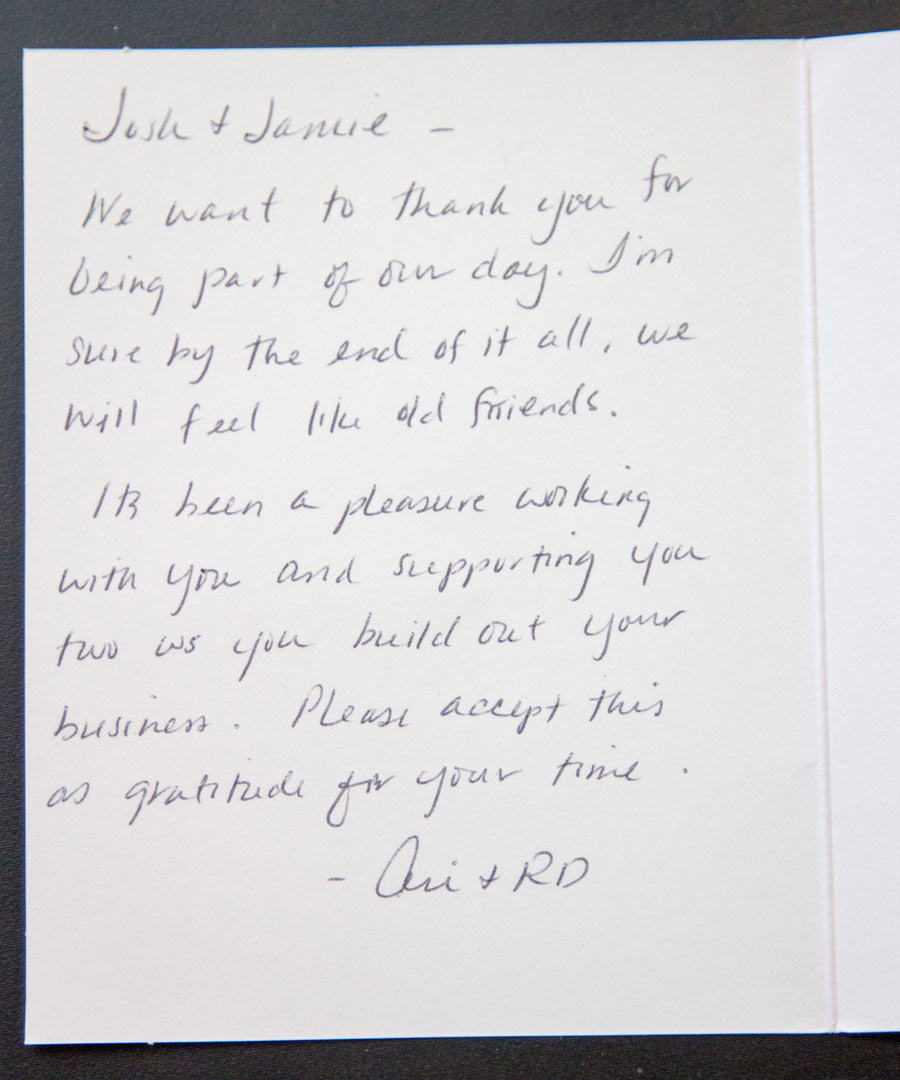 Josh + Jamie –
We want to thank you for
being part of our day. I'm
sure by the end of it all, we
will feel like old friends.
It's been a pleasure working
with you and supporting you
two as you build out your
business. Please accept this
as gratitude for your time.
- Ari + RD